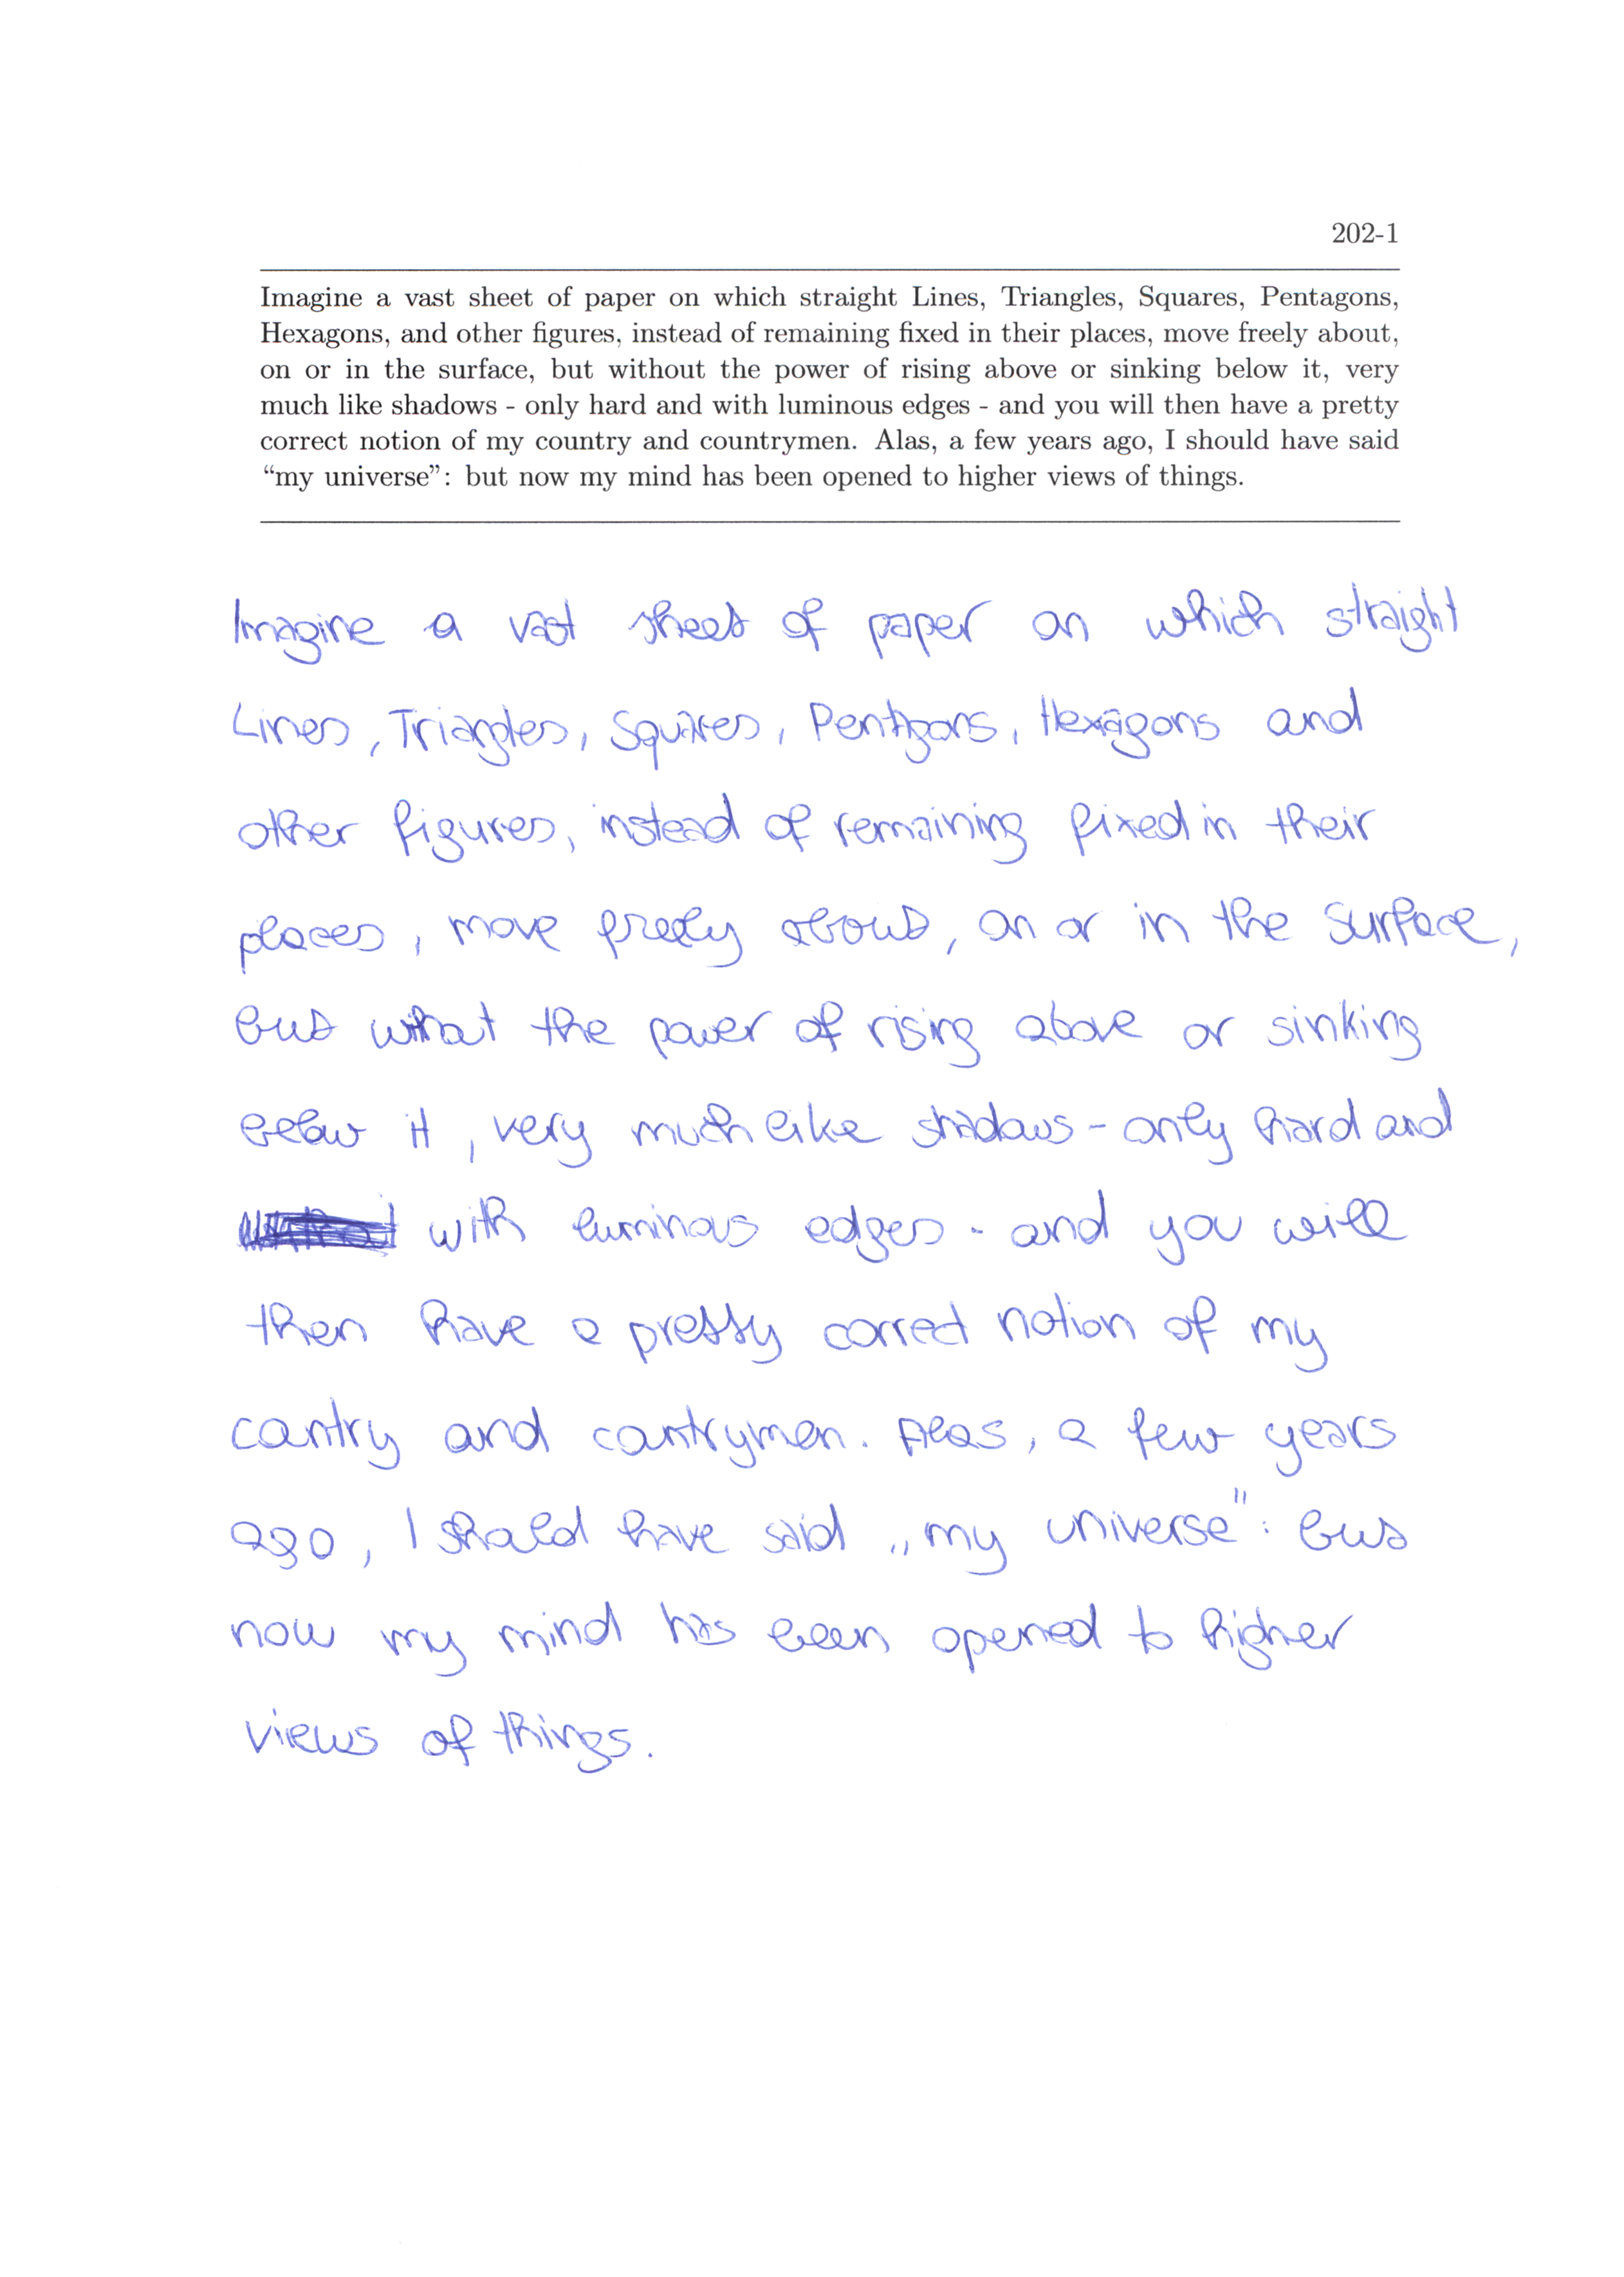 202-1
Imagine a vast sheet of paper on which straight Lines, Triangles, Squares, Pentagons,
Hexagons, and other figures, instead of remaining fixed in their places, move freely about,
on or in the surface, but without the power of rising above or sinking below it, very
much like shadows - only hard and with luminous edges - and you will then have a pretty
correct notion of my country and countrymen. Alas, a few years ago, I should have said
“my universe”: but now my mind has been opened to higher views of things.
Imagine a vast sheet of paper on which straight
Lines, Triangles, Squares, Pentagons, Hexagons and
other figures, instead of remaining fixed in their
places, move freely about, on or in the surface,
but what the power of rising above or sinking
below it, very much like shadows - only hard and
with luminous edges - and you will
then have a pretty correct notion of my
country and countrymen. Alas, a few years
ago, I should have said „my universe": but
now my mind has been opened to higher
views of things.